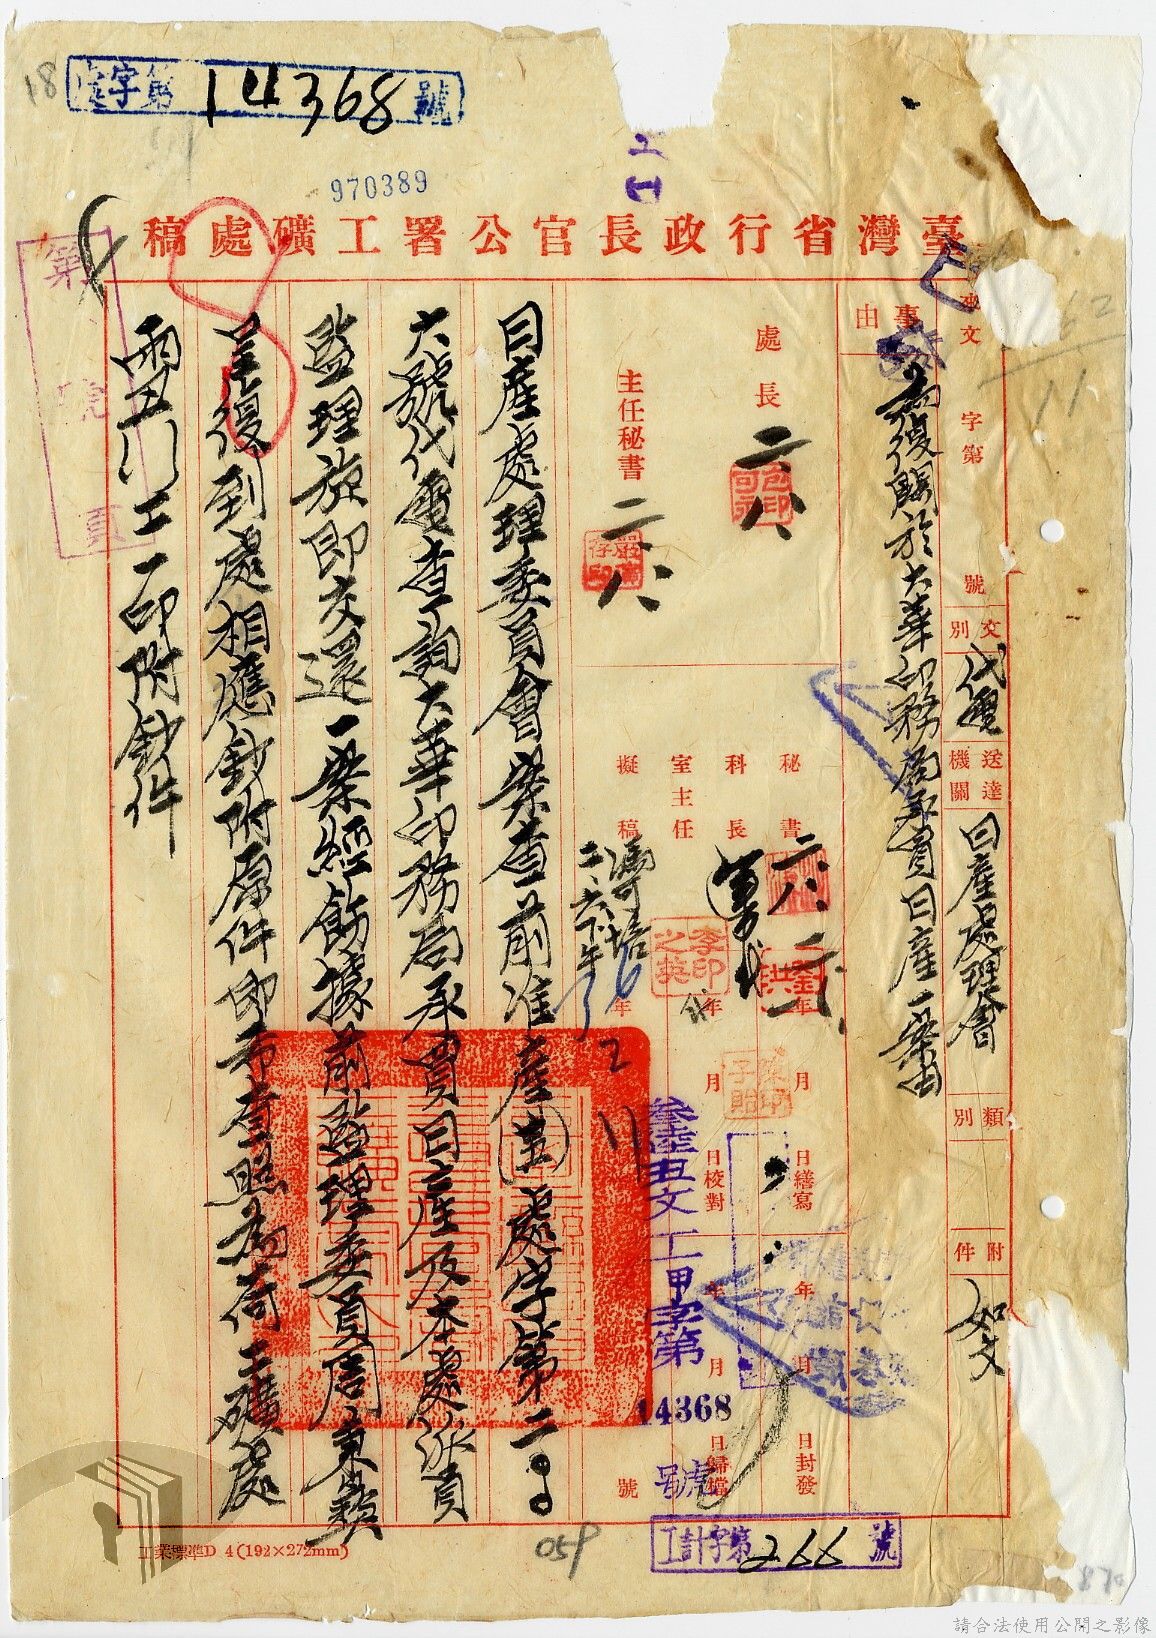 處字第14368號
18
970389
臺灣省行政長官公署工礦處稿
來文 字第 號
文別 代電
送達機關 日產處理會
類別
附件 如文
事由
為復關於大華印務局承買日產一案由
處長 二八
主任秘書 二八
秘書
科長
室主任
擬稿
李印之英
年 月 日繕寫
年 月 日校對
年 月 日封發
日歸檔
號
參陸丑文工甲字第
14368
號
日產處理委員會案查前准產(圭)處字第二〇〇
六號代電查詢大華印務局承買日產及本處派員
監理旋即交還一案經飭據前監理委員周東籟
呈復到處相應鈔附原件即希查照為荷工礦處
丑 工 印附鈔件
第 號 頁
工業標準D 4 (192×272mm)
059
工計字第266號
請合法使用公開之影像